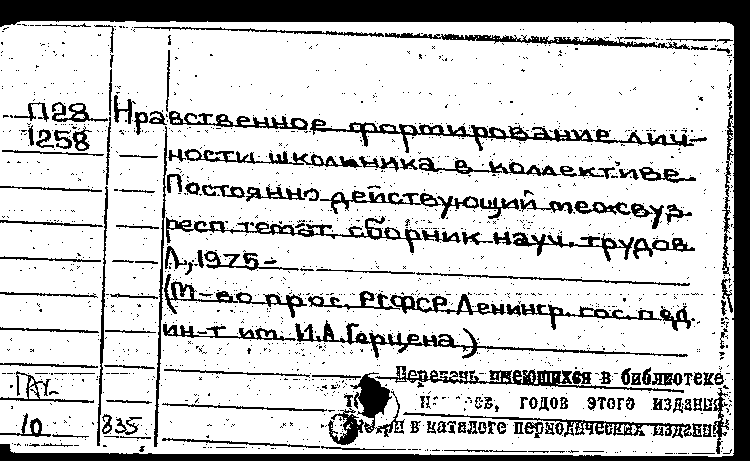 П28 Нравственное формирование лич-
1258 ности школьника в коллективе.
Постоянно действующий межвуз.
респ. темат. сборник науч. трудов.
Л., 1975-
(М-во прос. РСФСР. Ленингр. гос. пед.
ин-т им. И.А.Герцена.)
Перечень имеющихся в библиотеке
годов этого издания
в каталоге периодических изданий
10 835